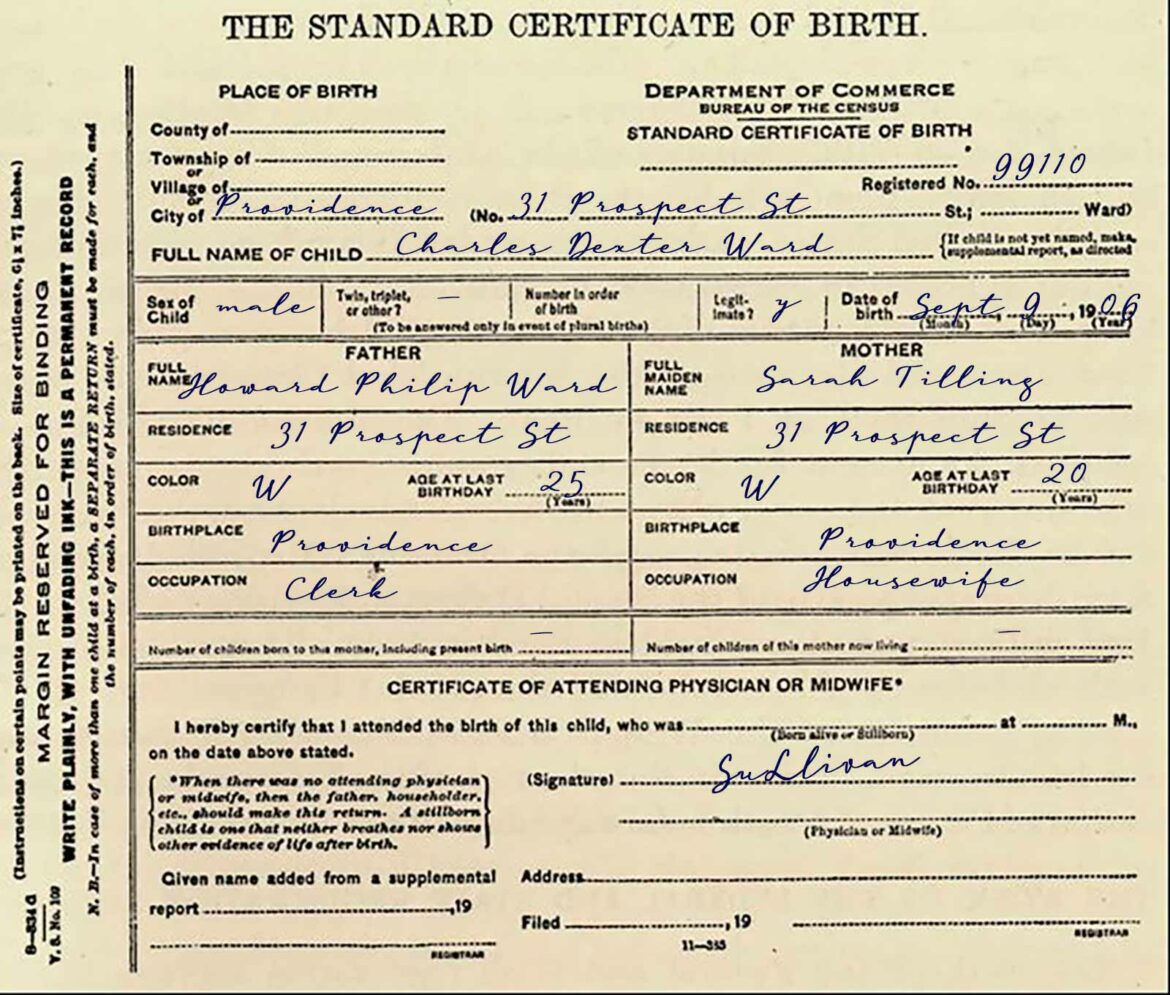 THE STANDARD CERTIFICATE OF BIRTH.
PLACE OF BIRTH
County of
Township of
or
Village of
or
City of Providence
DEPARTMENT OF COMMERCE
BUREAU OF THE CENSUS
STANDARD CERTIFICATE OF BIRTH
Registered No. 99110
(No. 31 Prospect St St.; Ward)
FULL NAME OF CHILD Charles Dexter Ward {If child is not yet named, make
supplemental report, as directed
Sex of Child male
Twin, triplet, or other? —
Number in order of birth
(To be answered only in event of plural births)
Legit-imate? y
Date of birth Sept 9, 1906
(Month) (Day) (Year)
FATHER
FULL NAME Howard Philip Ward
RESIDENCE 31 Prospect St
COLOR W AGE AT LAST BIRTHDAY 25
(Years)
BIRTHPLACE Providence
OCCUPATION Clerk
MOTHER
FULL MAIDEN NAME Sarah Tilling
RESIDENCE 31 Prospect St
COLOR W AGE AT LAST BIRTHDAY 20
(Years)
BIRTHPLACE Providence
OCCUPATION Housewife
Number of children born to this mother, including present birth —
Number of children of this mother now living —
CERTIFICATE OF ATTENDING PHYSICIAN OR MIDWIFE*
I hereby certify that I attended the birth of this child, who was at M.,
(Born alive or Stillborn)
on the date above stated.
{*When there was no attending physician
or midwife, then the father, householder,
etc., should make this return. A stillborn
child is one that neither breathes nor shows
other evidence of life after birth.}
(Signature) SuLlivan
(Physician or Midwife)
Given name added from a supplemental
report ,19
REGISTRAR
Address
Filed , 19
REGISTRAR
11—353
(Instructions on certain points may be printed on the back. Size of certificate, 6½ x 7½ inches.)
MARGIN RESERVED FOR BINDING
WRITE PLAINLY, WITH UNFADING INK—THIS IS A PERMANENT RECORD
N. B.—In case of more than one child at a birth, a SEPARATE RETURN must be made for each, and
the number of each, in order of birth, stated.
V. S. No. 109